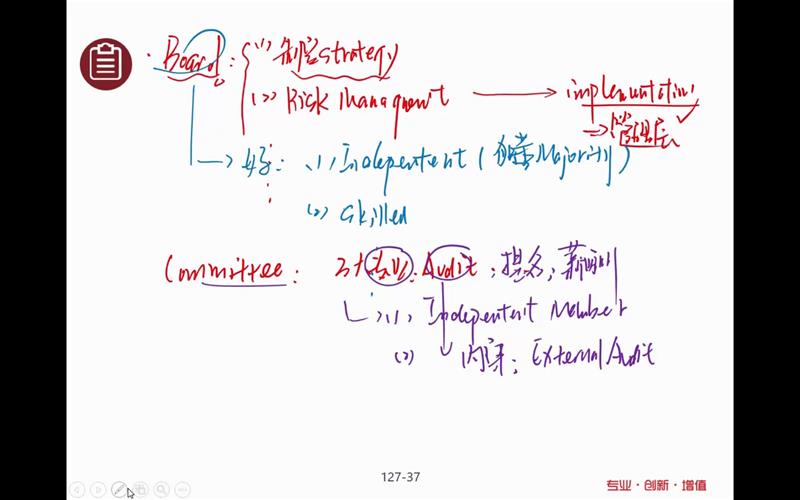 · Board: (1) 制定strategy
(2) Risk Managment → implementation
→ 管理层
→ 好: (1) Indepentent (独董Majority)
(2) Skilled
Committee: 3大 Audit; 提名; 薪酬
(1) Indepentent Member
(2) 内审; External Audit
127-37
专业·创新·增值